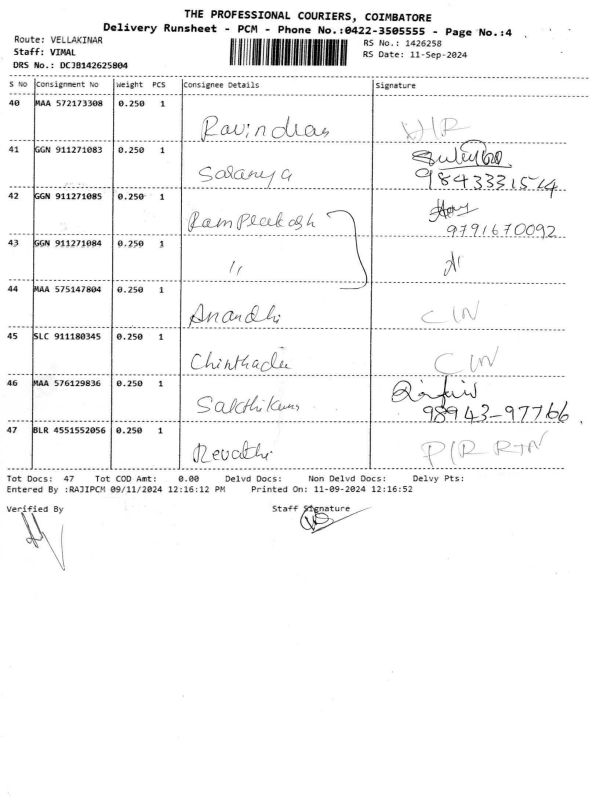 THE PROFESSIONAL COURIERS, COIMBATORE
Delivery Runsheet - PCM - Phone No.:0422-3505555 - Page No.:4
Route: VELLAKINAR RS No.: 1426258
Staff: VIMAL RS Date: 11-Sep-2024
DRS No.: DCJB142625804
S No Consignment No Weight PCS Consignee Details Signature
40 MAA 572173308 0.250 1
Ravindran
41 GGN 911271083 0.250 1
Saranya 9843331514
42 GGN 911271085 0.250 1
Ram Prakash 9791670092
43 GGN 911271084 0.250 1
"
44 MAA 575147804 0.250 1
Anandhi C IN
45 SLC 911180345 0.250 1
C IN
46 MAA 576129836 0.250 1
98943-97766
47 BLR 4551552056 0.250 1
Revathi P/R RTN
Tot Docs: 47 Tot COD Amt: 0.00 Delvd Docs: Non Delvd Docs: Delvy Pts:
Entered By :RAJIPCM 09/11/2024 12:16:12 PM Printed On: 11-09-2024 12:16:52
Verified By Staff Signature